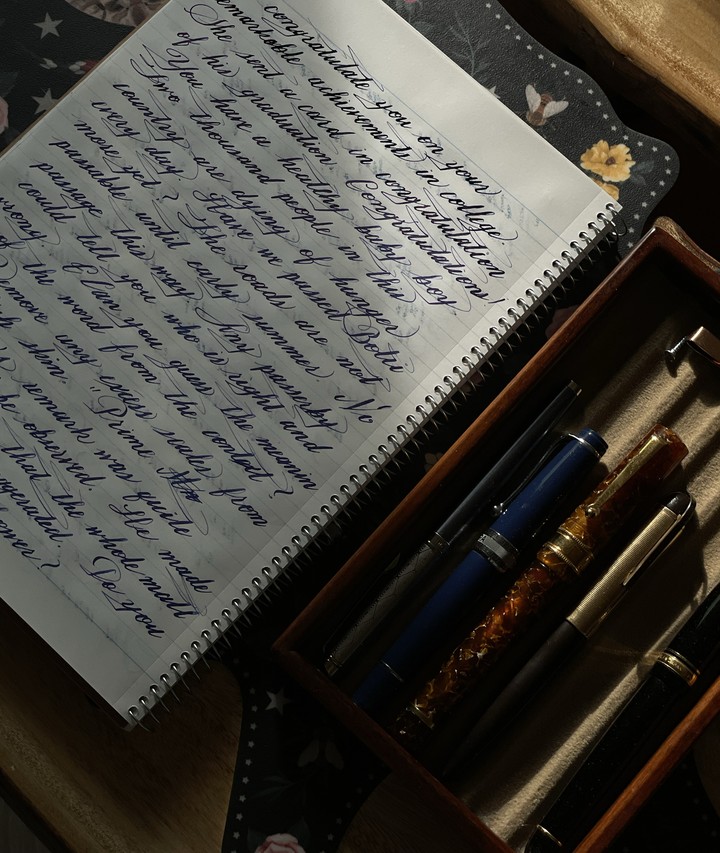 congratulate you on your
remarkable achievements in college
She sent a card in congratulation
of his graduation. Congratulations!
You have a healthy baby boy
Two thousand people in this
country are dying of hunger
every day. Have we passed Dotri
most yet? The roads are not
passable until early summer. No
passage this may Key passerby
could tell you who is right and
wrong. Can you guess the meanin
of the word from the context?
Remove any excess scales from
skin. Prime
remark was quide
be observed. He made
that the whole matt
exaggerated. Do you